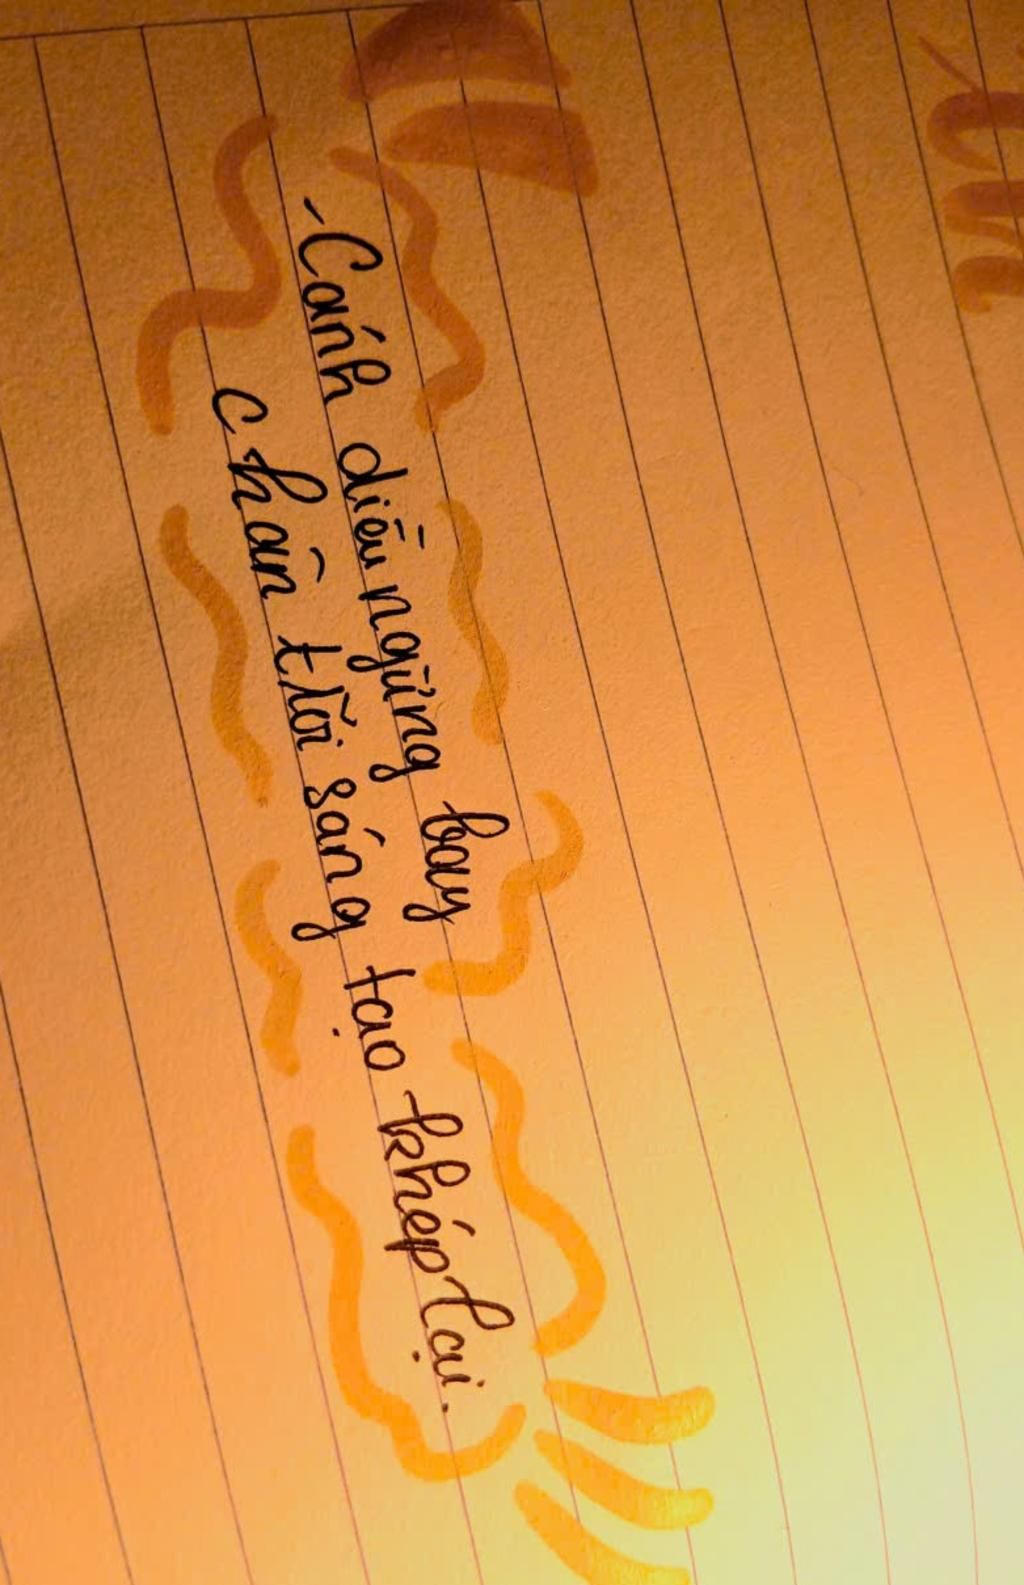 -Cánh diều ngừng bay
chân trời sáng tạo khép lại.